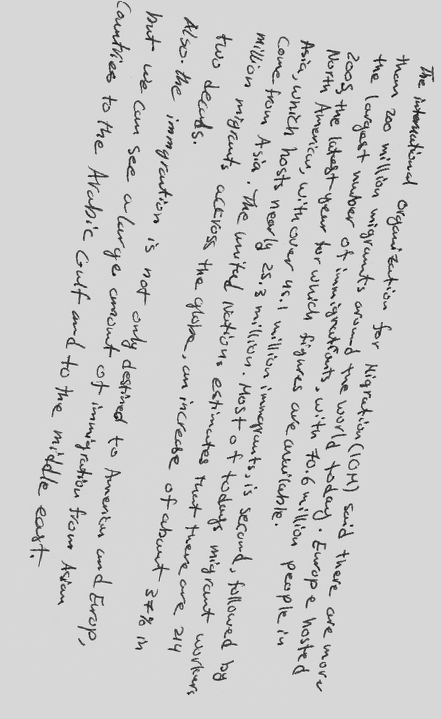 The international Organization for Migration (IOM) said there are more
than 200 million migrants around the world today. Europe hosted
the largest number of immigrants, with 70.6 million people in
2005, the latest year for which figures are available.
North American, with over 45.1 million immigrants, is second, followed by
Asia, which hosts nearly 25.3 million. Most of todays migrant workers
come from Asia. The united Nations estimates that there are 214
million migrants across the globe, an increase of about 37% in
two decads.
Also. the immigration is not only destined to American and Europ,
but we can see a large amount of immigration from Asian
Countries to the Arabic Gulf and to the middle east.